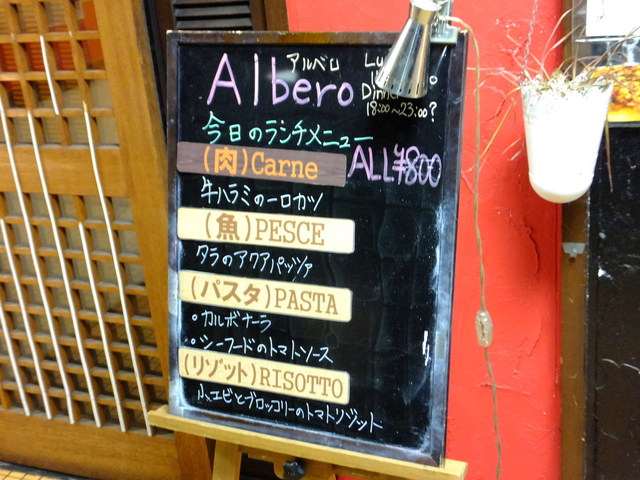 Albero
アルベロ
Dinner
18:00〜23:00?
今日のランチメニュー
(肉)Carne
ALL¥800
牛ハラミの一口カツ
(魚)PESCE
タラのアクアパッツァ
(パスタ)PASTA
。カルボナーラ
。シーフードのトマトソース
(リゾット)RISOTTO
小エビとブロッコリーのトマトリゾット